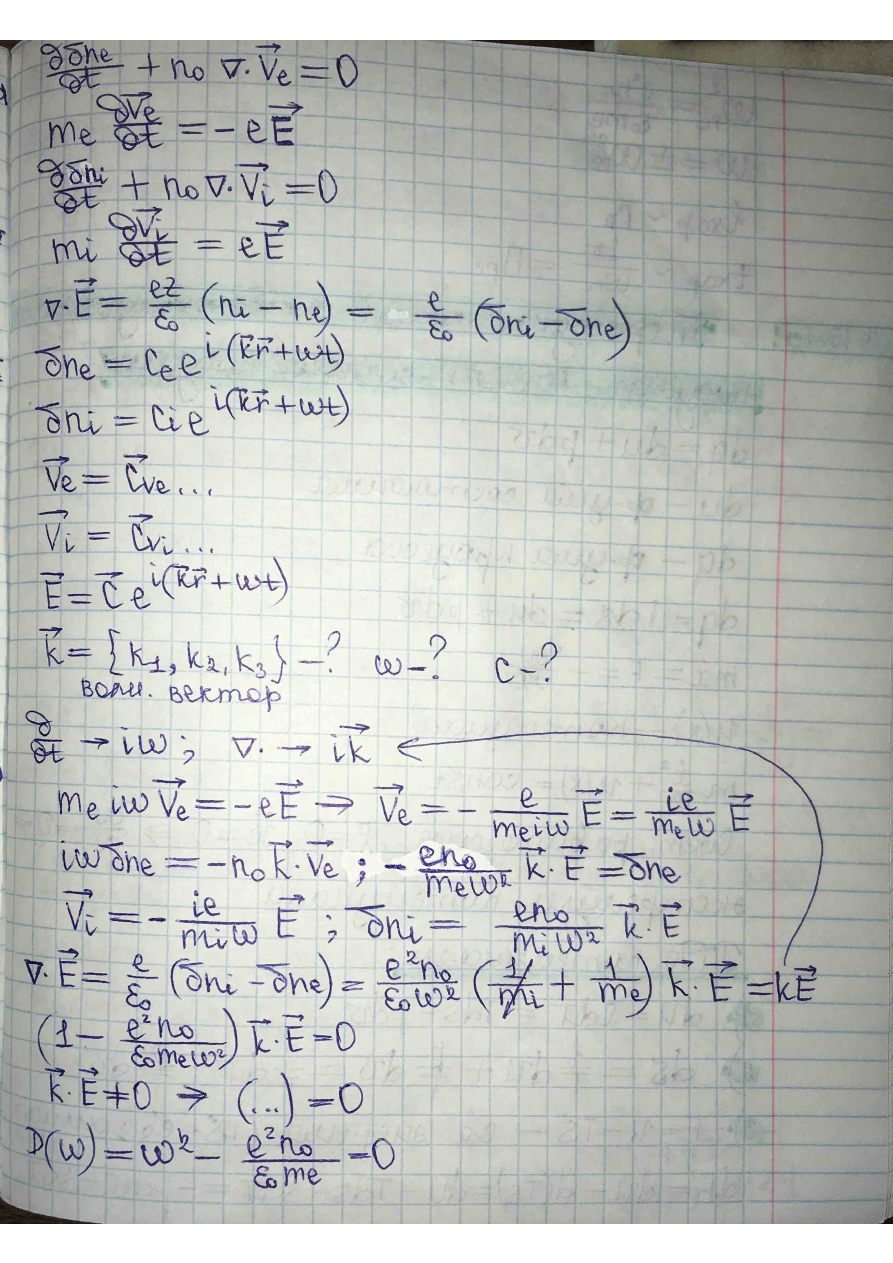 ∂δnₑ/∂t + n₀ ∇·V⃗ₑ = 0
mₑ ∂V⃗ₑ/∂t = - eE⃗
∂δnᵢ/∂t + n₀ ∇·V⃗ᵢ = 0
mᵢ ∂V⃗ᵢ/∂t = eE⃗
∇·E⃗ = ez/ε₀ (nᵢ - nₑ) = e/ε₀ (δnᵢ - δnₑ)
δnₑ = Cₑ e^{i(k⃗r⃗+ωt)}
δnᵢ = Cᵢ e^{i(k⃗r⃗+ωt)}
V⃗ₑ = C⃗_{Ve} ...
V⃗ᵢ = C⃗_{Vi} ...
E⃗ = C⃗ e^{i(k⃗r⃗+ωt)}
k⃗ = {k₁, k₂, k₃} -? ω-? C-?
волн. вектор
∂/∂t → iω; ∇· → ik⃗
mₑ iω V⃗ₑ = -eE⃗ → V⃗ₑ = - e/(mₑiω) E⃗ = ie/(mₑω) E⃗
iωδnₑ = -n₀ k⃗·V⃗ₑ ; - en₀/(mₑω²) k⃗·E⃗ = δnₑ
V⃗ᵢ = - ie/(mᵢω) E⃗ ; δnᵢ = en₀/(mᵢω²) k⃗·E⃗
∇·E⃗ = e/ε₀ (δnᵢ - δnₑ) = e²n₀/(ε₀ω²) (1/mᵢ + 1/mₑ) k⃗·E⃗ = kE⃗
(1 - e²n₀/(ε₀mₑω²)) k⃗·E⃗ = 0
k⃗·E⃗ ≠ 0 → (...) = 0
D(ω) = ω² - e²n₀/(ε₀mₑ) = 0